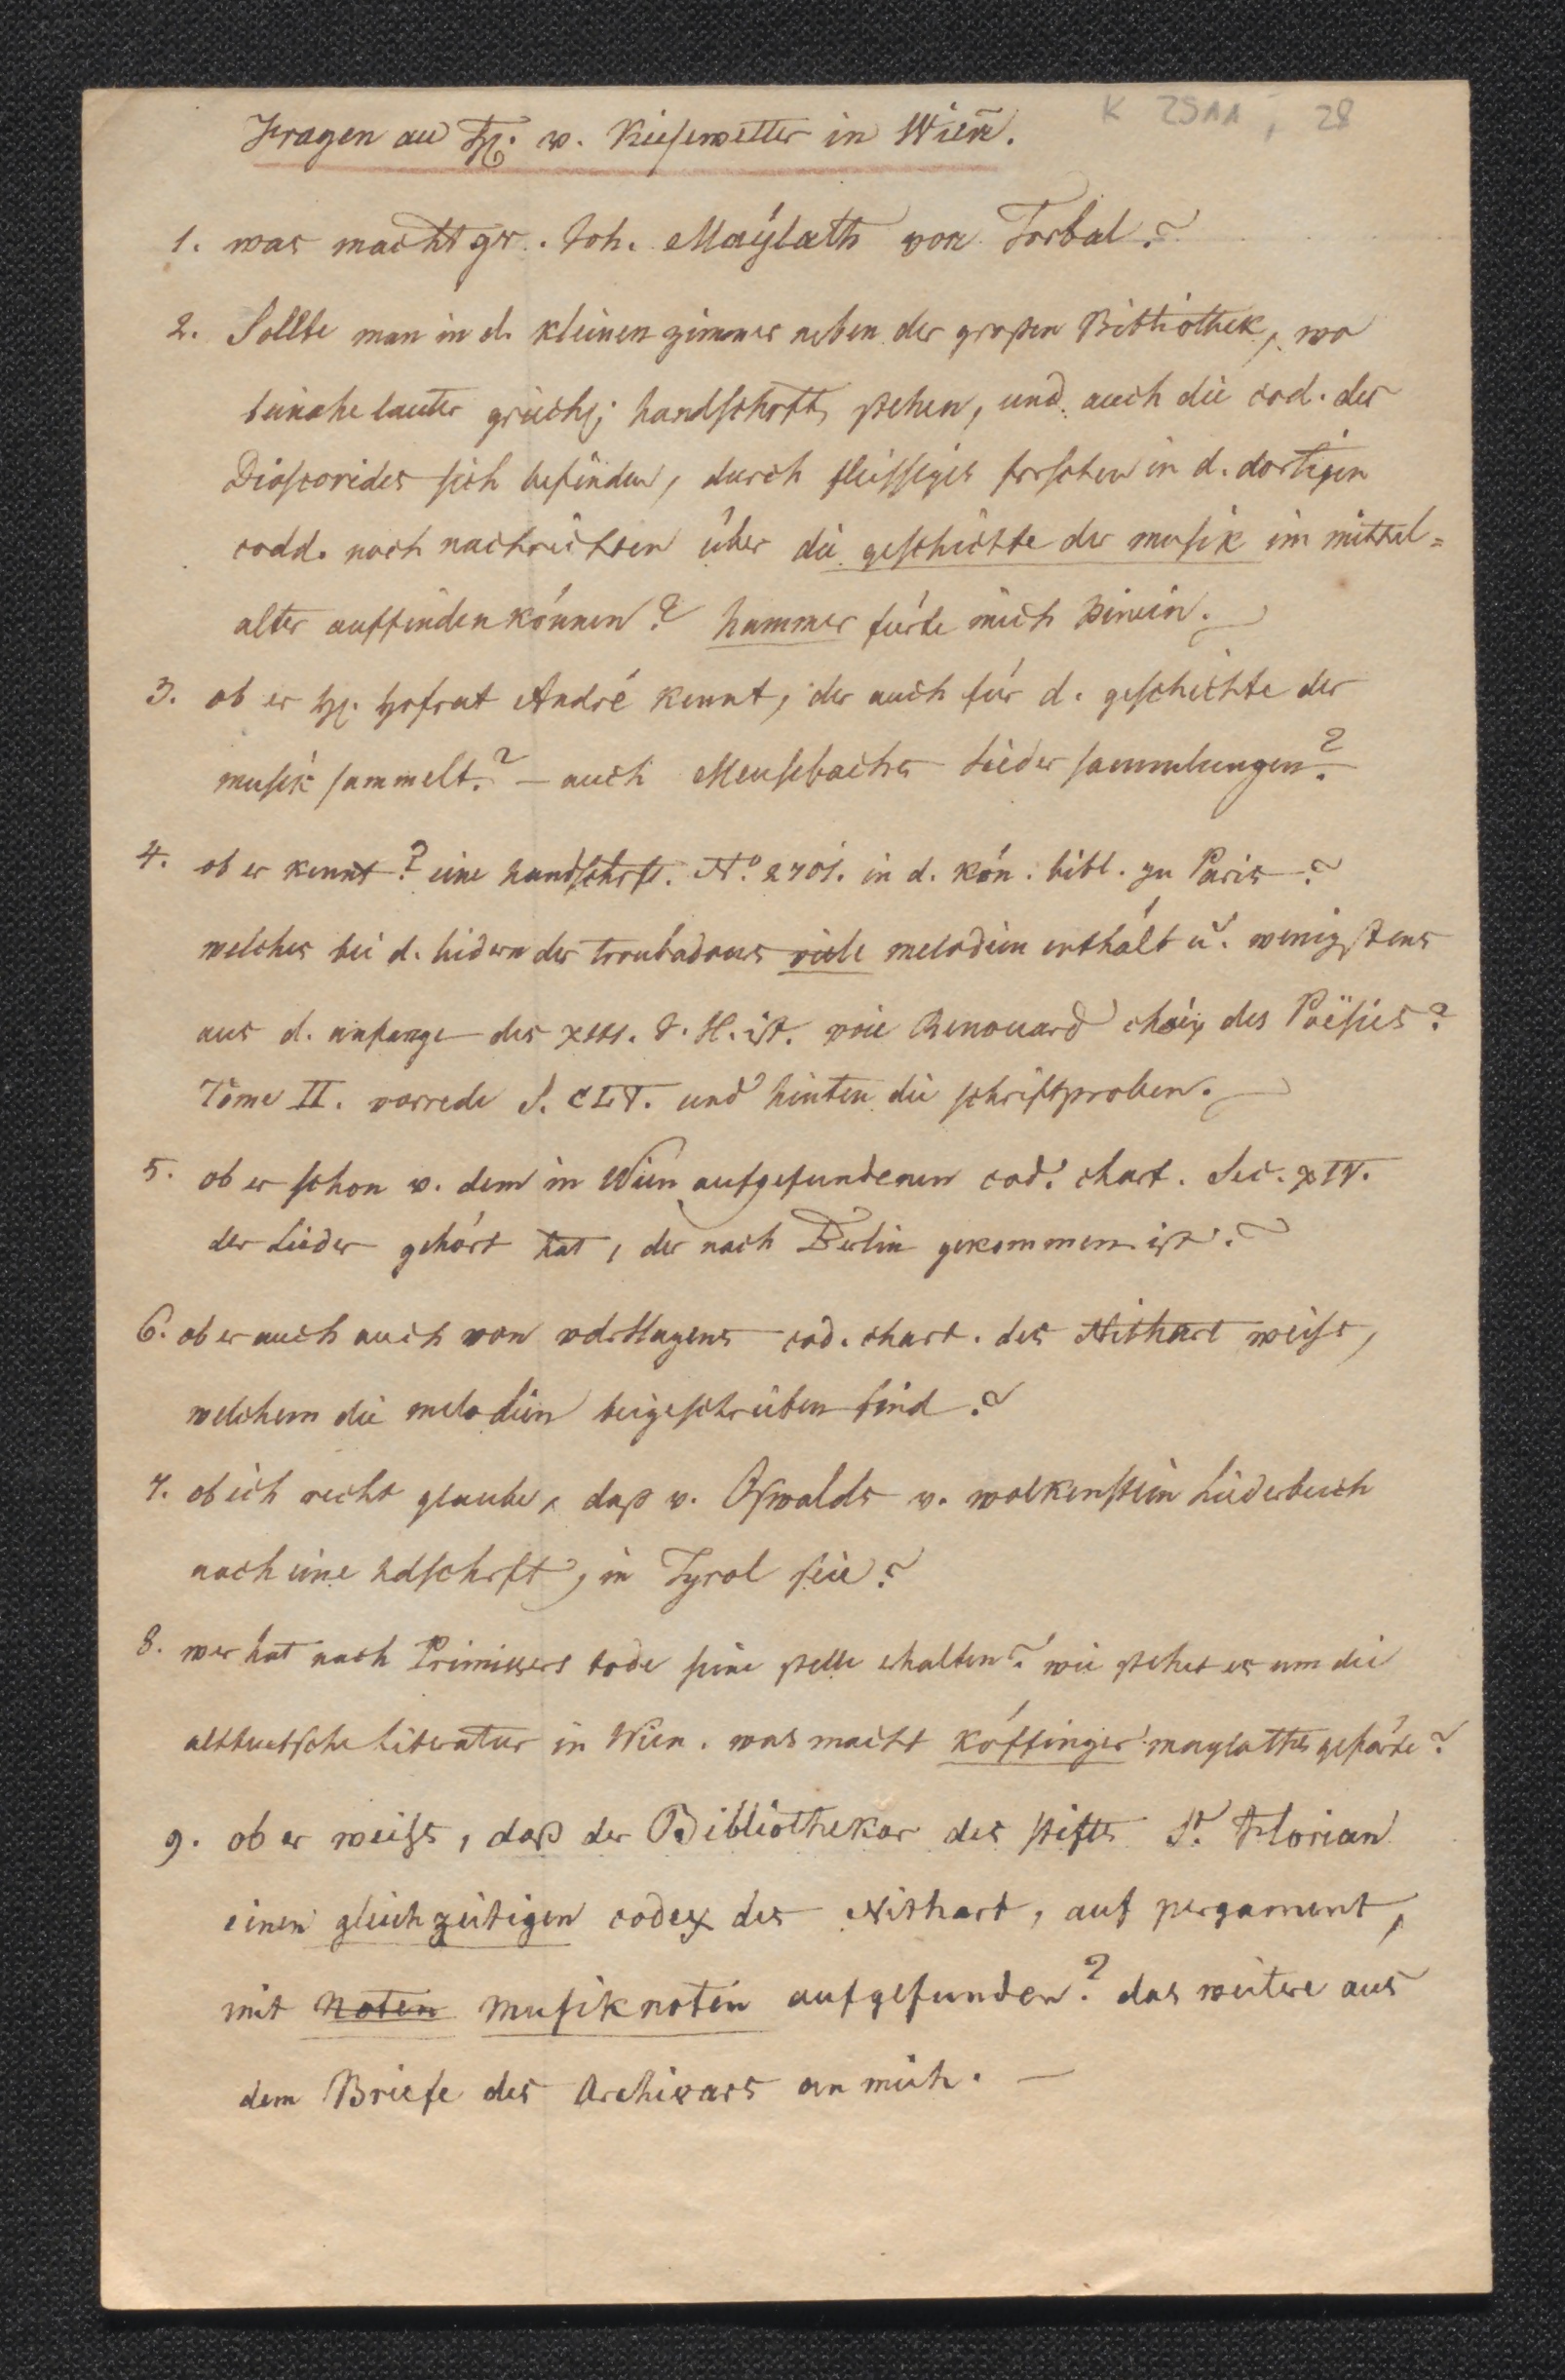 K 2511, 28
Fragen an H. v. Kiesewetter in Wien.
1. was macht gr. Joh. Maÿlath von Torbal?
2. Sollte man in d. kleinen zimmer neben der großen Bibliothek, wo
beinahe lauter griech. handschrft, stehen, und auch die cod. des
Dioscorides sich befinden, durch fleissiges forschen in d. dortigen
codd. noch nachrichten über die geschichte der musik im mittel=
alter auffinden können? hammer fürte mich hinein. —
3. ob er H. Hofrat André kennt, der auch für d. geschichte der
musik sammelt? — auch Meusebachs Liedersammlungen?
4. ob er kennt? eine handschrft. N.o 2701. in d. kön. bibl. zu Paris?
welches bei d. liedern der troubadours viele melodien enthält u. wenigstens
aus d. anfange des XIII. J. H. ist. wie Renouard choix des Poësies?
Tome II. vorrede S. CLV. und hinten die schriftproben. —
5. ob er schon v. dem in Wien aufgefundenen cod. chart. Sec. XIV.
der Lieder gehört hat, der nach Berlin gekommen ist?
6. ob er auch auch von vdrHagens cod. chart. des Nithart weiss,
welchem die melodien beigeschrieben sind?
7. ob ich recht glaube, daß v. Oswalds v. wolkenstein Liederbuch
noch eine hdschrft, in Tyrol seie?
8. wer hat nach Primissers tode seine stelle erhalten? wie stehet es um die
alttuetsche Literatur in Wien. was macht köffinger maylaths gefärte?
9. ob er weiss, daß der Bibliothekar des stifts St. Florian
einen gleichzeitigen codex des Nithart, auf pergament,
mit noten musiknoten aufgefunden? das weitere aus
dem Briefe des Archivars an mich. —